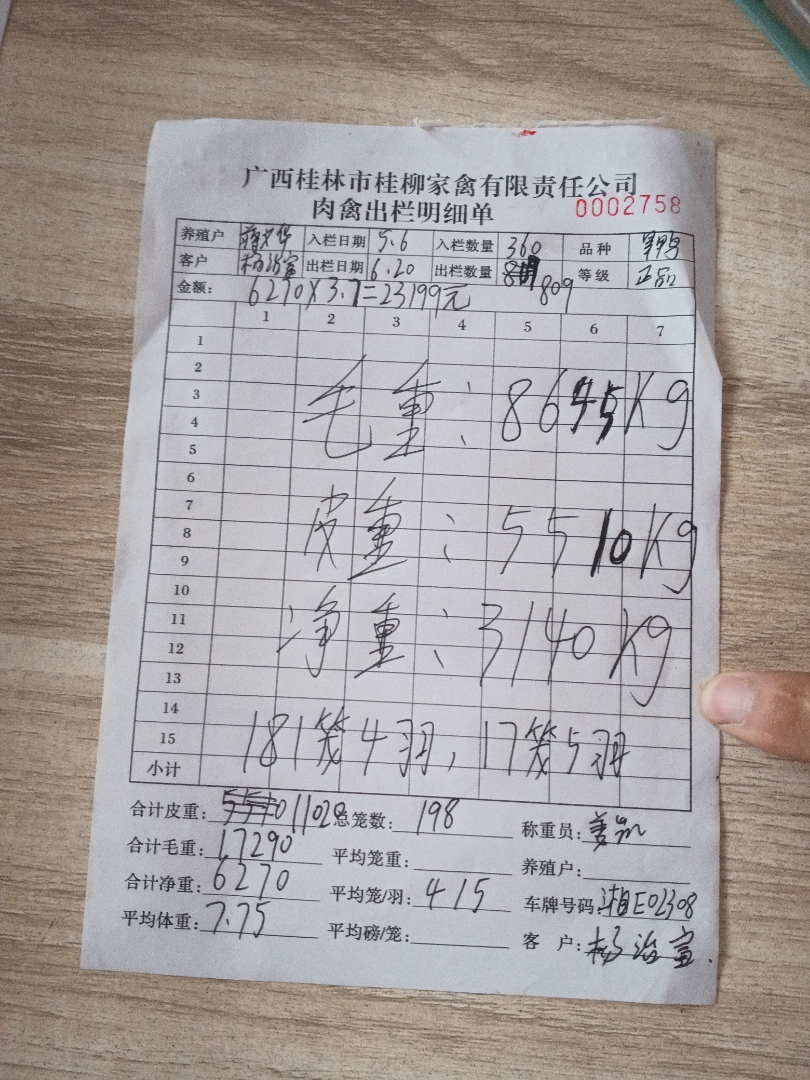 广西桂林市桂柳家禽有限责任公司
肉禽出栏明细单 0002758
养殖户 入栏日期 5.6 入栏数量 360 品种
客户 杨治富 出栏日期 6.20 出栏数量 809 等级 正品
金额: 6270X3.7=23199元
1 2 3 4 5 6 7
1
2
3 毛重: 8645Kg
4
5
6
7
8 皮重: 5510Kg
9
10
11
12 净重: 3140Kg
13
14
15 181笼4羽,17笼5羽
小计
合计皮重: 11020 总笼数: 198 称重员:
合计毛重: 17290 平均笼重: 养殖户:
合计净重: 6270 平均笼/羽: 415 车牌号码: 湘E02308
平均体重: 7.75 平均磅/笼: 客户: 杨治富